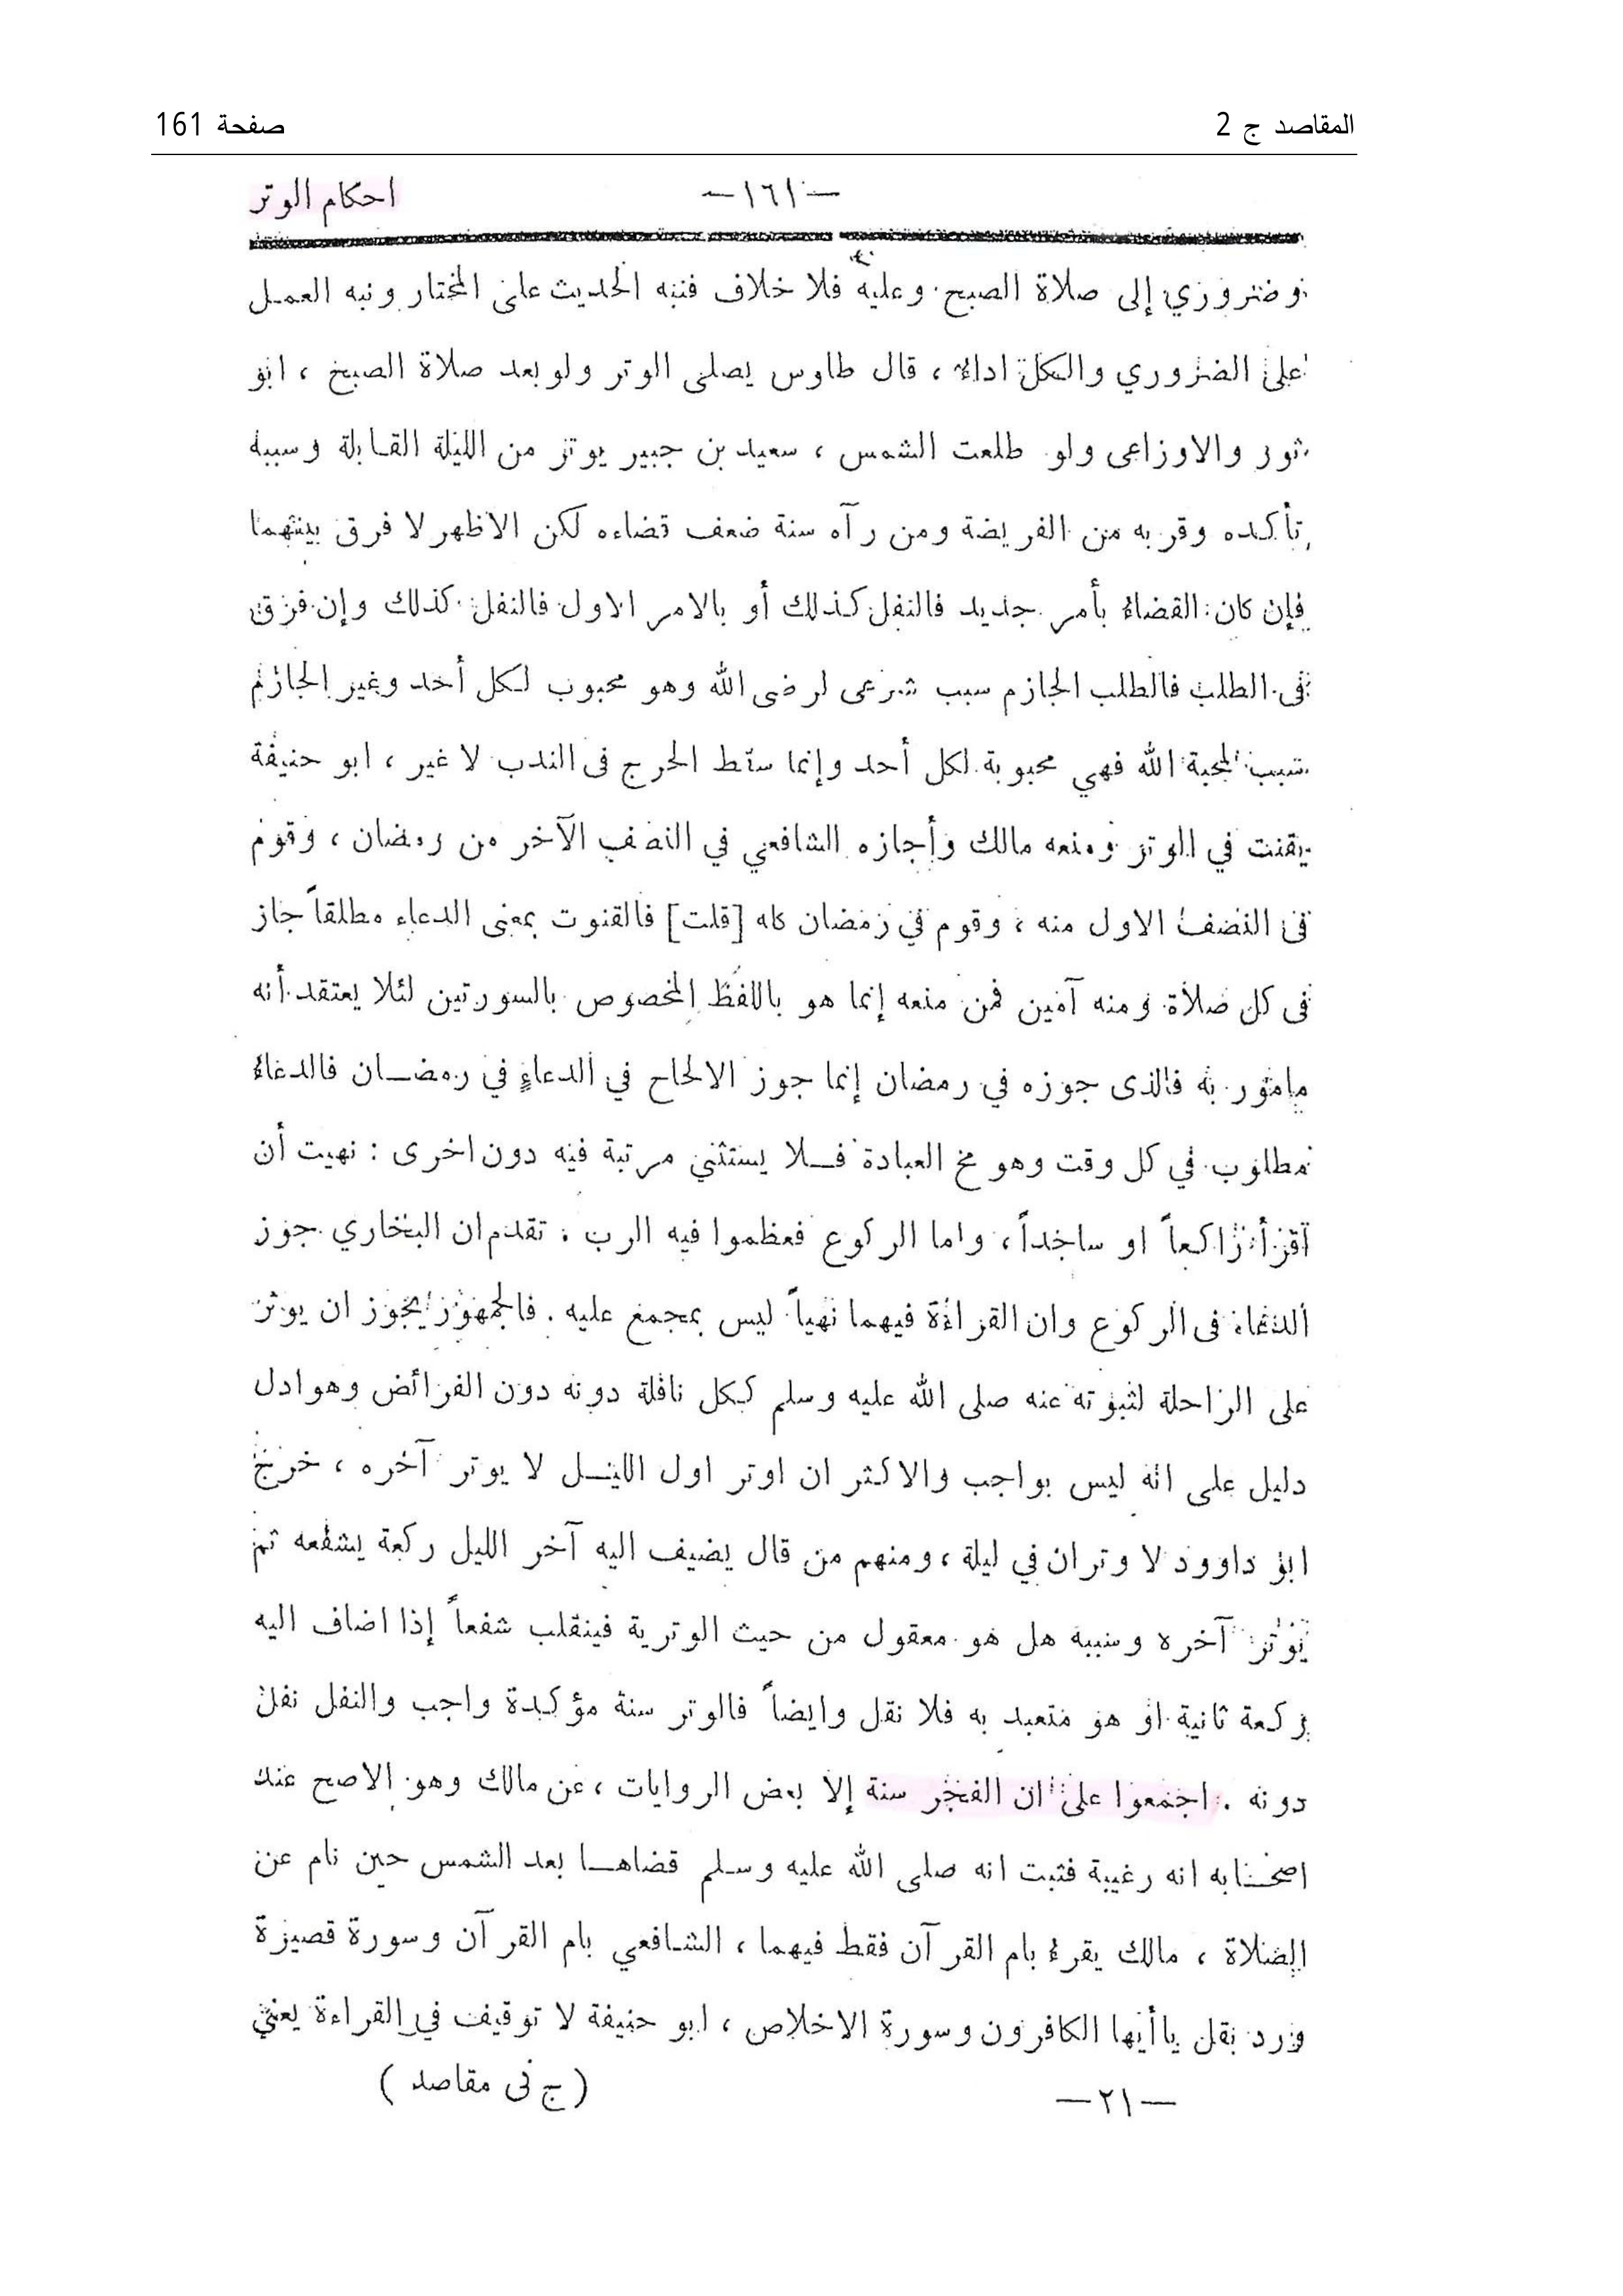 المقاصد ج 2
صفحة 161
احكام الوتر
—١٦١—
وضروري إلى صلاة الصبح وعليه فلا خلاف فنبه الحديث على المختار ونبه العمل
على الضروري والكل اداء ، قال طاوس يصلى الوتر ولو بعد صلاة الصبح ، ابو
ثور والاوزاعى ولو طلعت الشمس ، سعيد بن جبير يوتر من الليلة القابلة وسببه
تأكده وقربه من الفريضة ومن رآه سنة ضعف قضاءه لكن الاظهر لا فرق بينهما
فإن كان القضاء بأمر جديد فالنفل كذلك أو بالامر الاول فالنفل كذلك وإن فرق
فى الطلب فالطلب الجازم سبب شرعى لرضى الله وهو محبوب لكل أحد وغير الجازم
سبب لمحبة الله فهي محبوبة لكل أحد وإنما سقط الحرج فى الندب لا غير ، ابو حنيفة
يقنت في الوتر ومنعه مالك وأجازه الشافعي في النصف الآخر من رمضان ، وقوم
فى النصف الاول منه ، وقوم في رمضان كله [قلت] فالقنوت بمعنى الدعاء مطلقاً جاز
فى كل صلاة ومنه آمين فمن منعه إنما هو باللفظ المخصوص بالسورتين لئلا يعتقد أنه
مامور به فالذى جوزه في رمضان إنما جوز الالحاح في الدعاء في رمضـان فالدعاء
مطلوب في كل وقت وهو مخ العبادة فـلا يستثني مرتبة فيه دون اخرى : نهيت أن
اقرأ راكعاً او ساجداً ، واما الركوع فعظموا فيه الرب . تقدم ان البخاري جوز
الدعاء فى الركوع وان القراءة فيهما نهياً ليس بمجمع عليه . فالجمهور يجوز ان يوتر
على الراحلة لثبوته عنه صلى الله عليه وسلم ككل نافلة دونه دون الفرائض وهو ادل
دليل على انه ليس بواجب والاكثر ان اوتر اول الليـل لا يوتر آخره ، خرج
ابو داوود لا وتران في ليلة ، ومنهم من قال يضيف اليه آخر الليل ركعة يشفعه ثم
يوتر آخره وسببه هل هو معقول من حيث الوترية فينقلب شفعاً إذا اضاف اليه
ركعة ثانية او هو متعبد به فلا نقل وايضاً فالوتر سنة مؤكدة واجب والنفل نفل
دونه . اجمعوا على ان الفجر سنة إلا بعض الروايات ، عن مالك وهو الاصح عند
اصحـابه انه رغيبة فثبت انه صلى الله عليه وسلم قضاهـا بعد الشمس حين نام عن
الصلاة ، مالك يقرء بام القرآن فقط فيهما ، الشافعي بام القرآن وسورة قصيرة
ورد بقل ياأيها الكافرون وسورة الاخلاص ، ابو حنيفة لا توقيف في القراءة يعنى
—٢١—
( ج نى مقاصد )